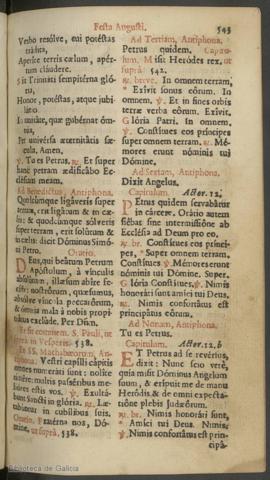 Festa Augusti.
543
Verbo resólve, cui potéstas
tráhita,
Aperíre terris cælum, apér-
tum cláudere.
Sit Trinitáti sempitérna gló-
ria,
Honor, potéstas, atque jubi-
látio,
In unitáte, quæ gubérnat óm-
nia,
Per univérsa æternitátis sæ-
cula. Amen.
℣. Tu es Petrus. ℟. Et super
hanc petram ædificábo Ec-
clésiam meam.
Ad Benedictus, Antiphona.
Quodcúmque ligáveris super
terram, erit ligátum & in cæ-
lis: & quodcúmque sólveris
super terram, erit solútum &
in cælis: dicit Dóminus Simó-
ni Petro.
Oratio.
Deus, qui beátum Petrum
Apóstolum, à vínculis
absolútum, illæsum abíre fe-
císti: nostrórum, quæsumus,
absólve víncula peccatórum,
& ómnia mala à nobis propi-
tiátus exclúde. Per Dñm.
Et fit commem. S. Pauli, ut
supra in Vesperis. 538.
En SS. Machabæorum, An-
tiphona. Vestri capílli cápitis
omnes numeráti sunt: nolíte
timére: multis passéribus me-
lióres estis vos. ℣. Exultá-
bunt Sancti in glória. ℟. Læ-
tabúntur in cubílibus suis.
Oratio. Fratérna nos, Dó-
mine, ut suprà, 538.
Ad Tertiam, Antiphona.
Petrus quidem. Capitu-
lum. Misit Heródes rex. ut
suprà: 542.
℟. breve. In omnem terram,
* Exívit sonus eórum. In
omnem. ℣. Et in fines orbis
terræ verba eórum. Exívit.
Glória Patri. In omnem.
℣. Constítues eos príncipes
super omnem terram. ℟. Mé-
mores erunt nóminis tui
Dómine.
Ad Sextam, Antiphona.
Dixit Angelus.
Capitulum. Actor. 12.
Petrus quidem servabátur
in cárcere. Orátio autem
fiébat sine intermissióne ab
Ecclésia ad Deum pro eo.
℟. br. Constítues eos prínci-
pes, * Super omnem terram.
Constítues. ℣. Mémores erunt
nóminis tui Dómine. Super.
Glória Constítues. ℣. Nimis
honoráti sunt amíci tui Deus.
℟. Nimis confortátus est
principátus eórum.
Ad Nonam, Antiphona.
Tu es Petrus.
Capitulum. Actor. 12. b
Et Petrus ad se revérsus,
dixit: Nunc scio verè,
quia misit Dóminus Angelum
suum, & erípuit me de manu
Heródis & de omni expecta-
tióne plebis Judæórum.
℟. br. Nimis honoráti sunt,
* Amíci tui Deus. Nimis.
℣. Nimis confortátus est prin-
cipá-
Biblioteca de Galicia